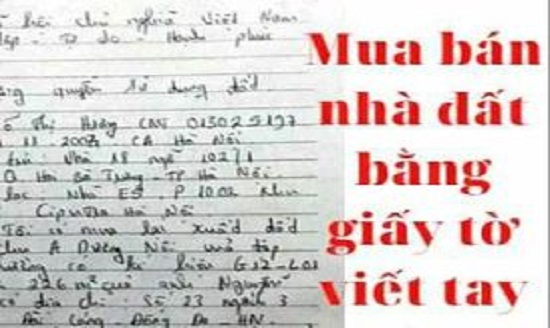 hội chủ nghĩa Việt Nam
lập - Tự do - Hạnh phúc
quyền sử dụng đất
Thị Hương CMT 013025197
11.2007 CA Hà Nội
Nhà 18 ngõ 1021
Q Hai Bà Trưng - TP Hà Nội
lạc Nhà E5 P 10.02 Khu
Ciputra Hà Nội
Tôi có mua lại xuất đất
khu A Dương Nội
có kí hiệu G12-L01
226 m² của anh Nguyễn
có địa chỉ: Số 23 ngách 3
Láng - Đống Đa - HN.
Mua bán
nhà đất
bằng
giấy tờ
viết tay